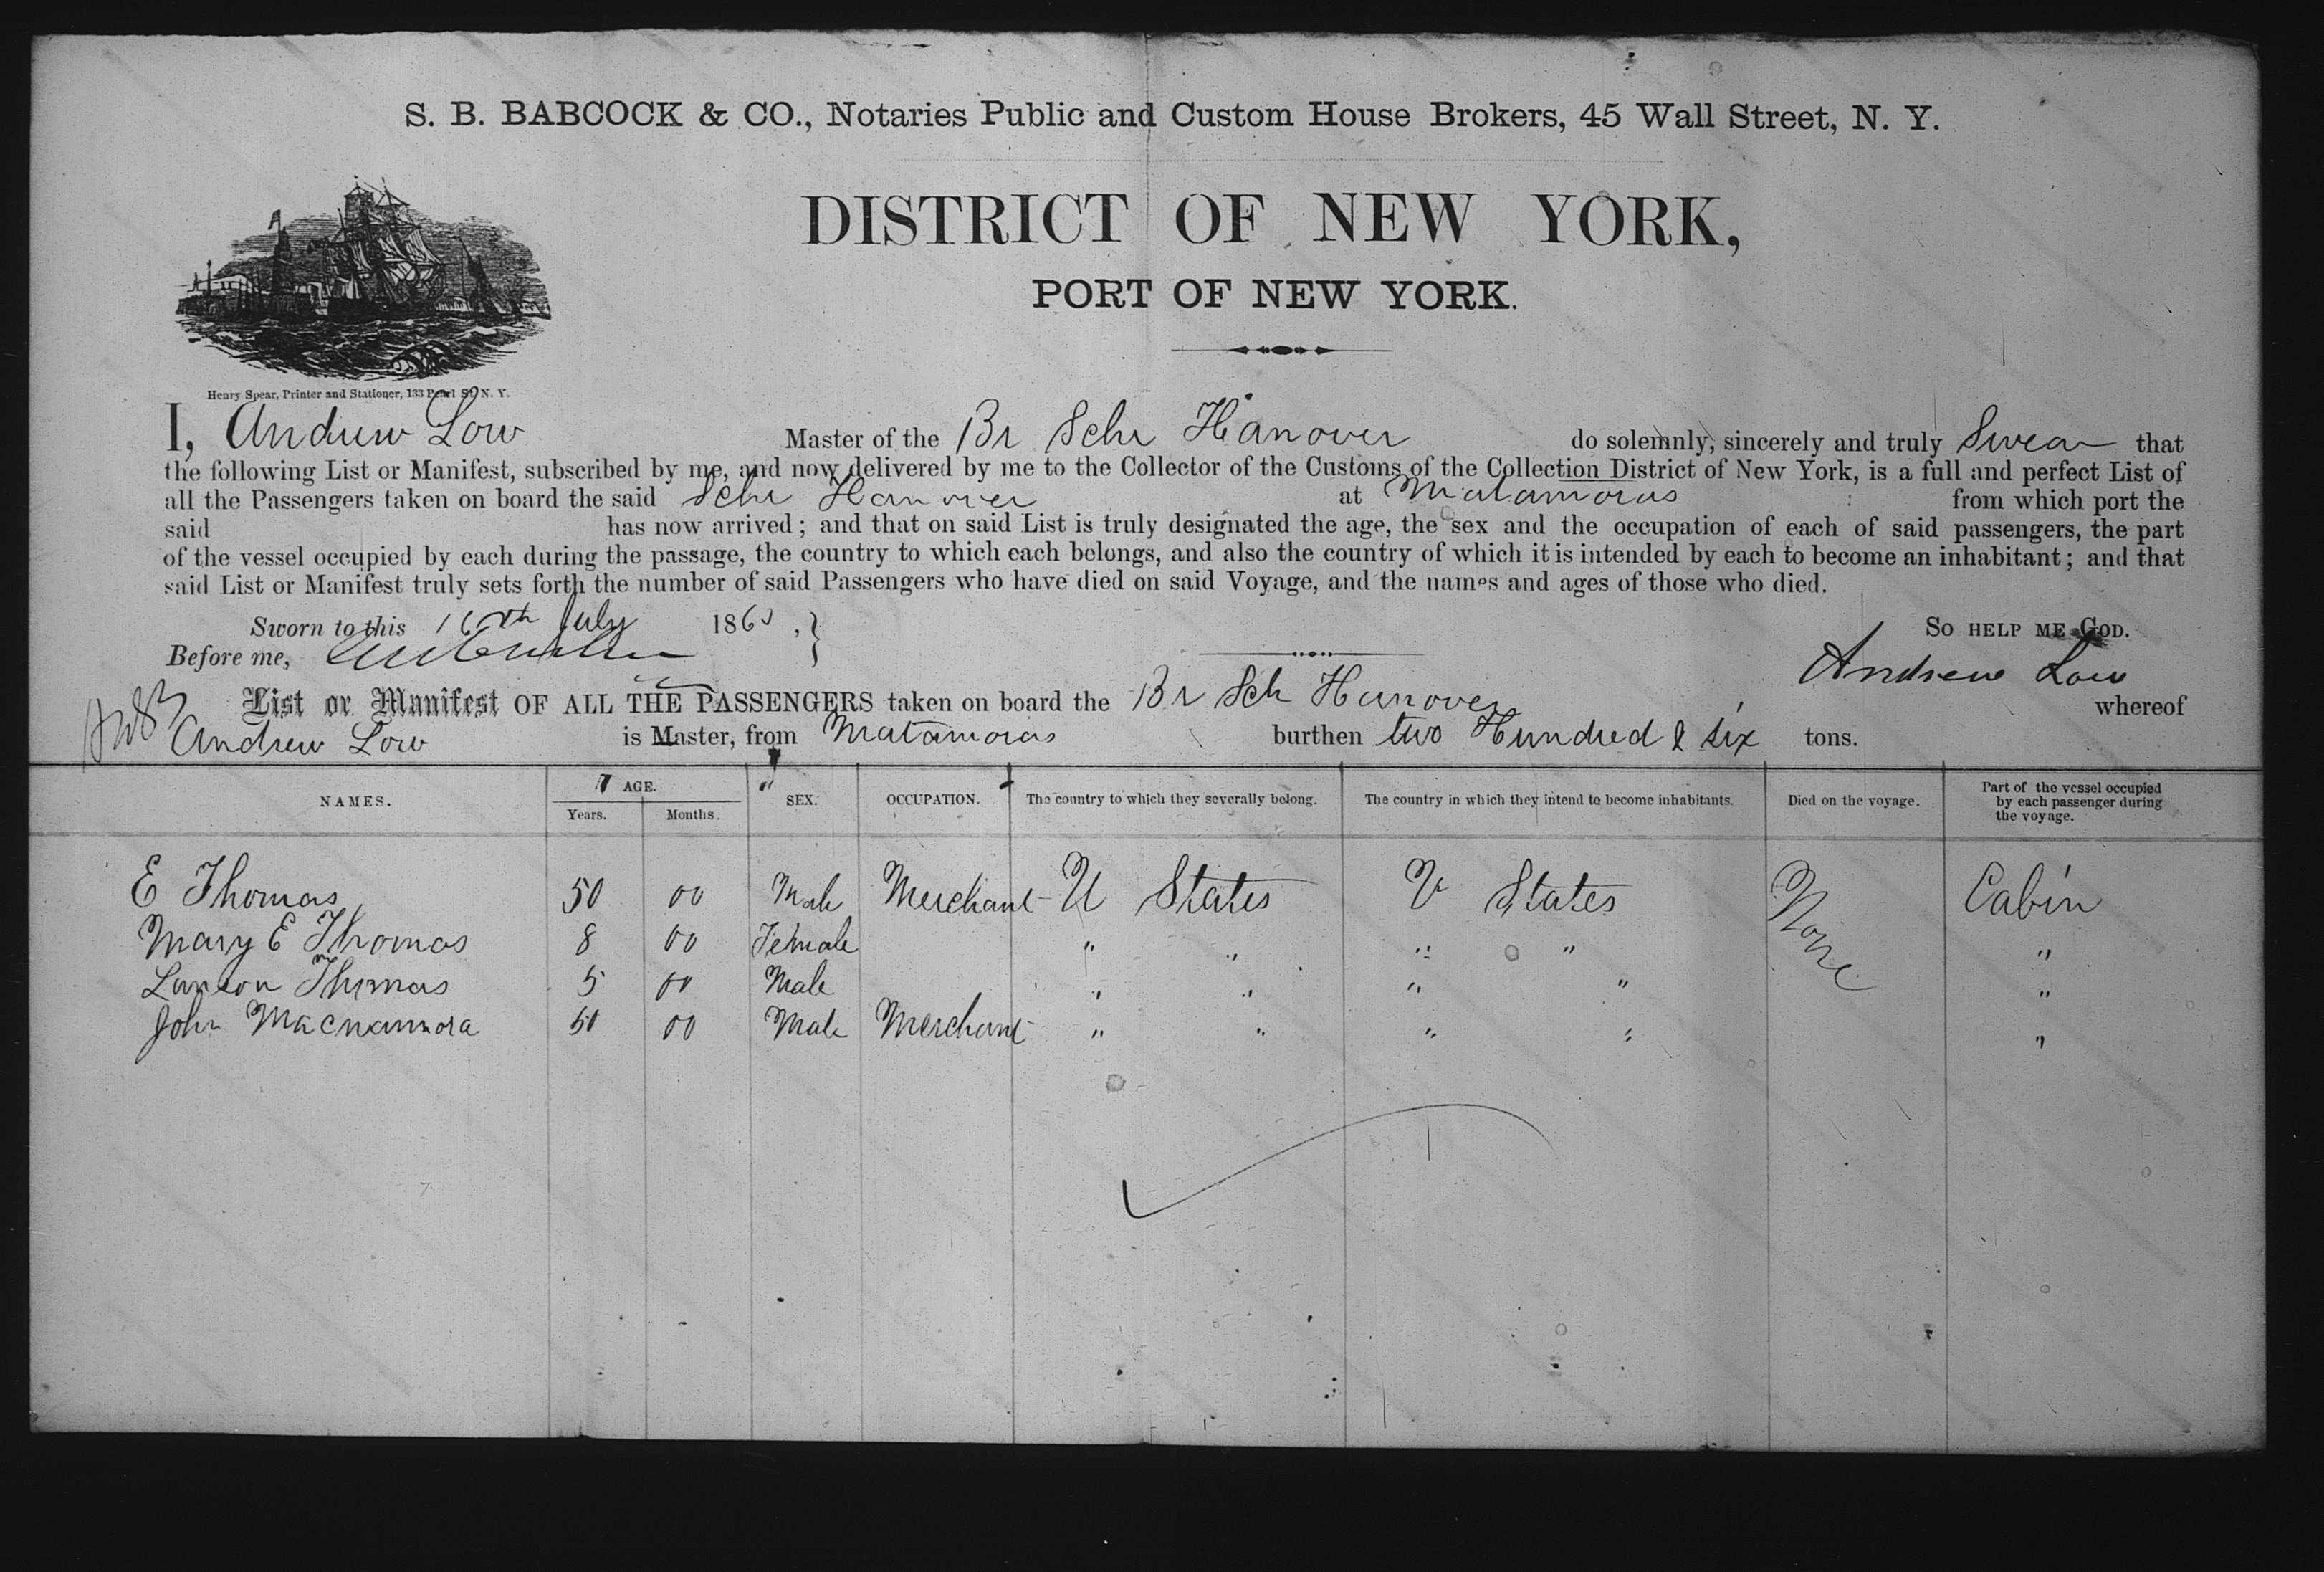 S. B. BABCOCK & CO., Notaries Public and Custom House Brokers, 45 Wall Street, N. Y.
DISTRICT OF NEW YORK,
PORT OF NEW YORK.
Henry Spear, Printer and Stationer, 133 Pearl St. N. Y.
I, Andrew Low Master of the Br Schr Hanover do solemnly, sincerely and truly Swear that
the following List or Manifest, subscribed by me, and now delivered by me to the Collector of the Customs of the Collection District of New York, is a full and perfect List of
all the Passengers taken on board the said Schr Hanover at Matamoras from which port the
said has now arrived; and that on said List is truly designated the age, the sex and the occupation of each of said passengers, the part
of the vessel occupied by each during the passage, the country to which each belongs, and also the country of which it is intended by each to become an inhabitant; and that
said List or Manifest truly sets forth the number of said Passengers who have died on said Voyage, and the names and ages of those who died.
Sworn to this 16th July 186 So HELP ME GOD.
Before me, Andrew Low
List or Manifest OF ALL THE PASSENGERS taken on board the Br Sch Hanover whereof
Andrew Low is Master, from Matamoras burthen two Hundred & six tons.
NAMES. AGE. Years. Months. SEX. OCCUPATION. The country to which they severally belong. The country in which they intend to become inhabitants. Died on the voyage. Part of the vessel occupied by each passenger during the voyage.
E Thomas 50 00 Male Merchant U States U States None Cabin
Mary E Thomas 8 00 Female " " " " "
Thomas 5 00 Male " " " " "
John Macnamara 50 00 Male Merchant " " " " "